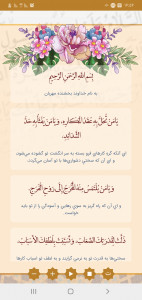 بِسْمِ اللَّهِ الرَّحْمَنِ الرَّحِيمِ
به نام خداوند بخشنده مهربان
يَا مَنْ تُحَلُّ بِهِ عُقَدُ الْمَكَارِهِ، وَيَا مَنْ يُفْثَأُ بِهِ حَدُّ
الشَّدَائِدِ،
ای آنکه گره کارهای فرو بسته به سر انگشت تو گشوده می‌شود،
و ای آن که سختی دشواری‌ها با تو آسان می‌گردد،
وَيَا مَنْ يُلْتَمَسُ مِنْهُ الْمَخْرَجُ إِلَى رَوْحِ الْفَرَجِ،
و ای آن که راه گریز به سوی رهایی و آسودگی را از تو باید
خواست.
ذَلَّتْ لِقُدْرَتِكَ الصِّعَابُ، وَتَسَبَّبَتْ بِلُطْفِكَ الْأَسْبَابُ،
سختی‌ها به قدرت تو به نرمی گرایند و به لطف تو اسباب کارها